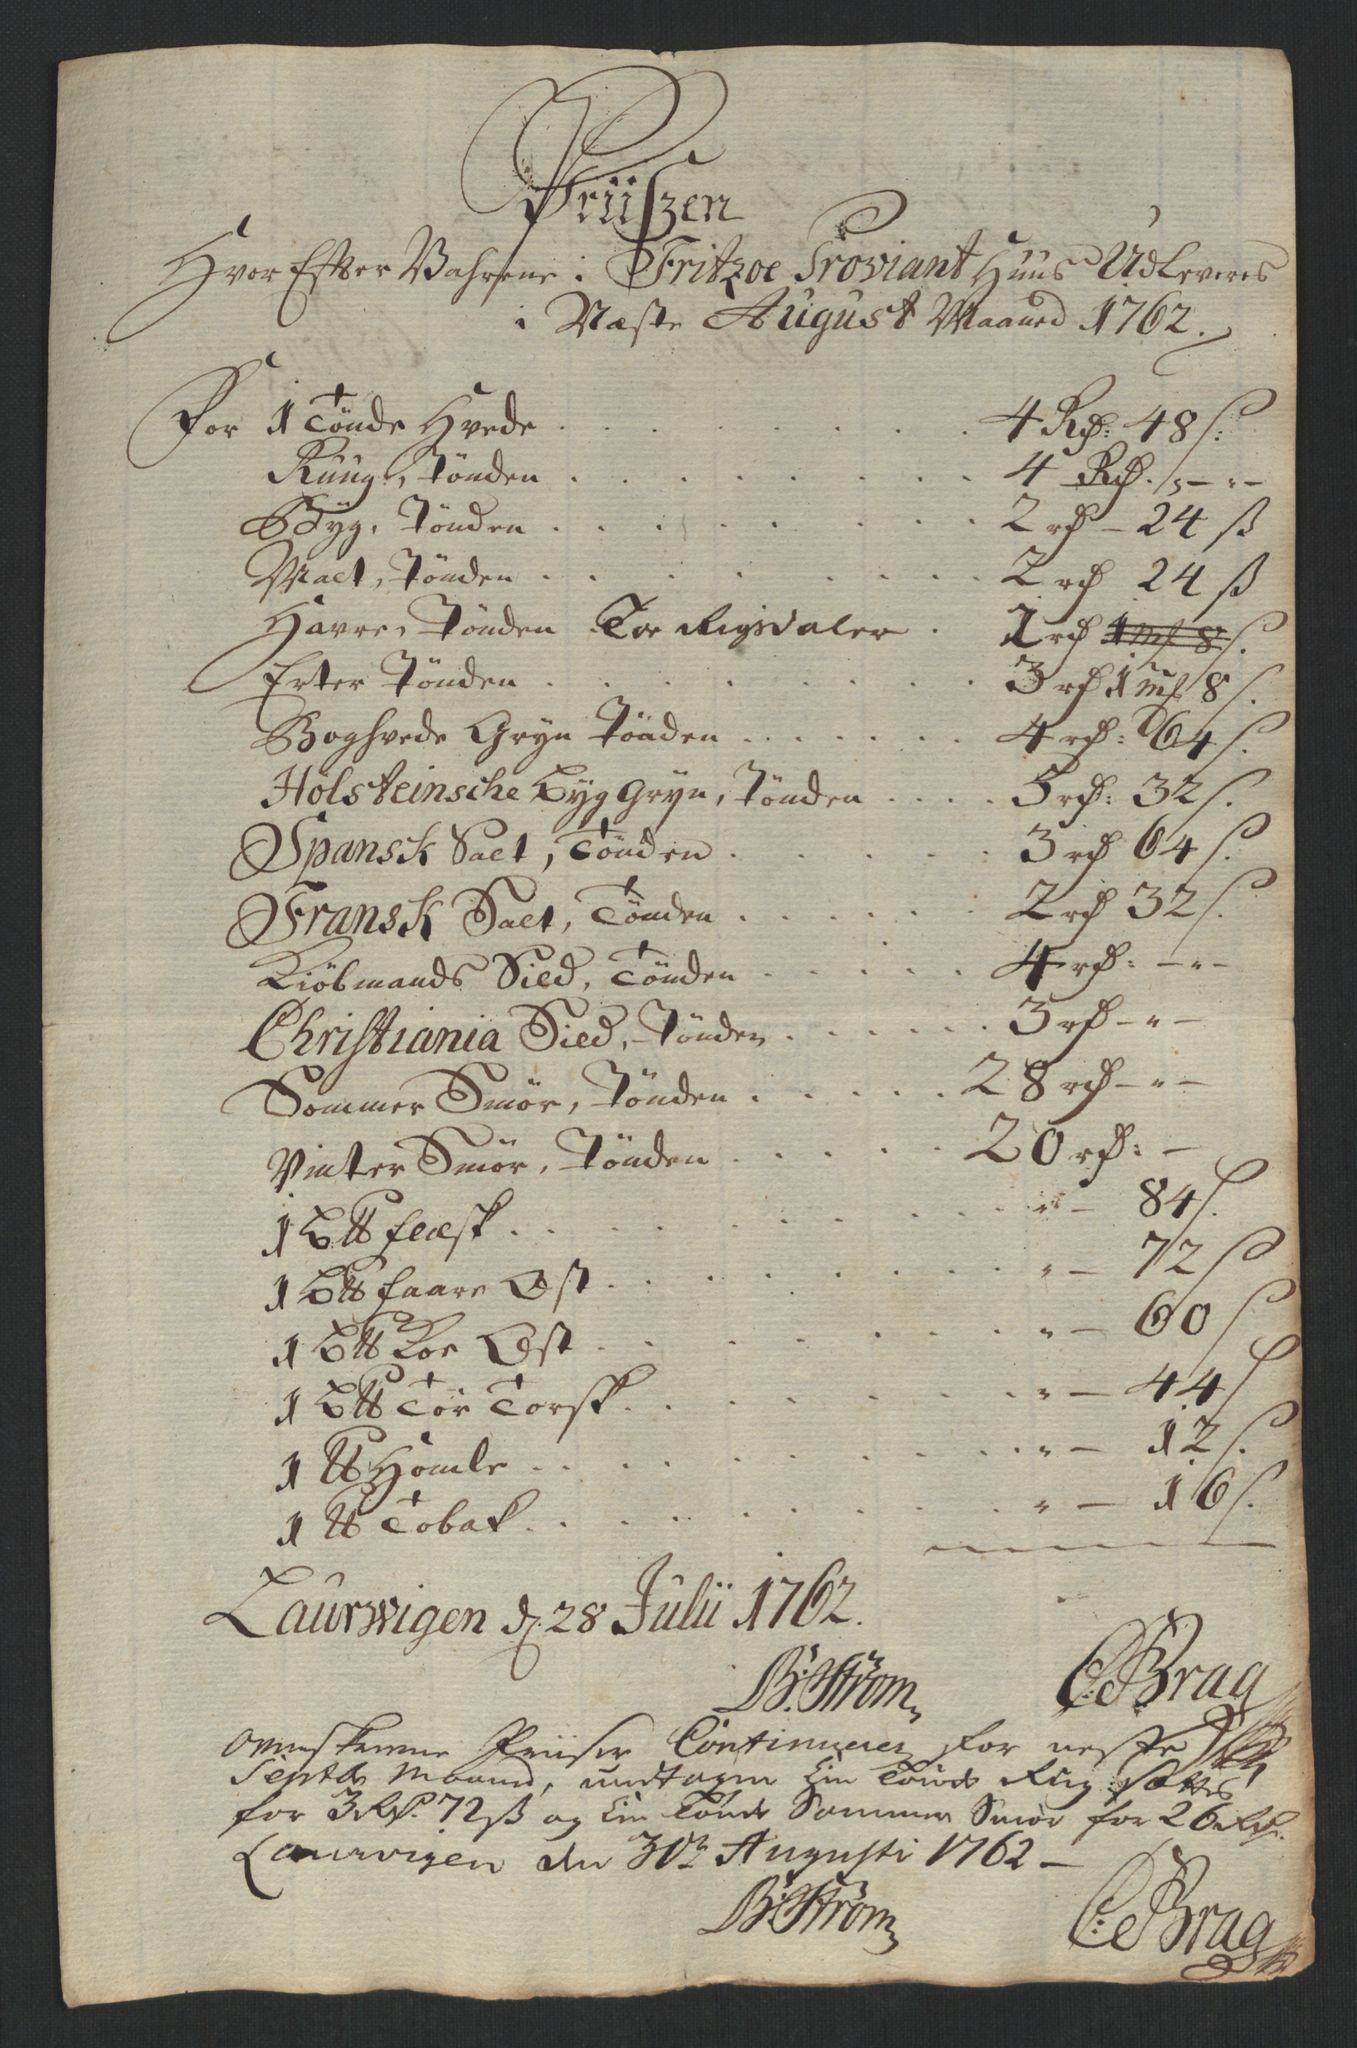 Priiszen
Hvor Efter Vahrene i Fritzoe Proviant Huus Udleveres
i Næste August Maaned 1762.
For 1 Tønde Hvede . . . . . . . 4 Rd: 48 s:
Ruug, Tønden . . . . . . . 4 Rd. „-"-
Byg, Tønden . . . . . . . 2 rd - 24 ß
Malt, Tønden . . . . . . . 2 rd 24 ß
Havre, Tønden Toe Rigsdaler . 2 rd 1 mk 8 s.
Erter Tønden . . . . . . . 3 rd 1 mk 8 s.
Boghvede Gryn Tönden . . . . . . 4 rd: 64 s.
Holsteinsche Byg Gryn, Tønden . . . . 5 rd: 32 s.
Spansk Salt, Tønden . . . . . 3 rd 64 s.
Fransk Salt, Tønden . . . . . . 2 rd 32 s.
Kiöbmands Sild, Tønden . . . . . 4 rd: -"-
Christiania Sild, Tønden . . . . . . 3 rd -"-
Sommer Smør, Tønden . . . . . 28 rd -"-
Vinter Smør, Tønden . . . . . 20 rd: -
1 B℔ Flæsk . . . . . . . . " - 84 s.
1 B℔ Faare Ost . . . . . . . " - 72 s
1 B℔ Koe Ost . . . . . . . " - 60 s
1 B℔ Tör Torsk . . . . . . . " - 44 s
1 ℔ Homle . . . . . . . . " - 12 s.
1 ℔ Tobak . . . . . . . . " - 16 s.
Laurwigen d. 28 Julii 1762.
B: Strøm, C: Brag
Ovenskrevne Priiser Continuerer for neste
Septbr Maaned, undtagen Een Tønde Rug sættes
for 3 Rd. 72 ß og Een Tønde Sommer Smör for 26 Rd.
Laurvigen den 30te Augusti 1762 -
B: Strøm, C: Brag